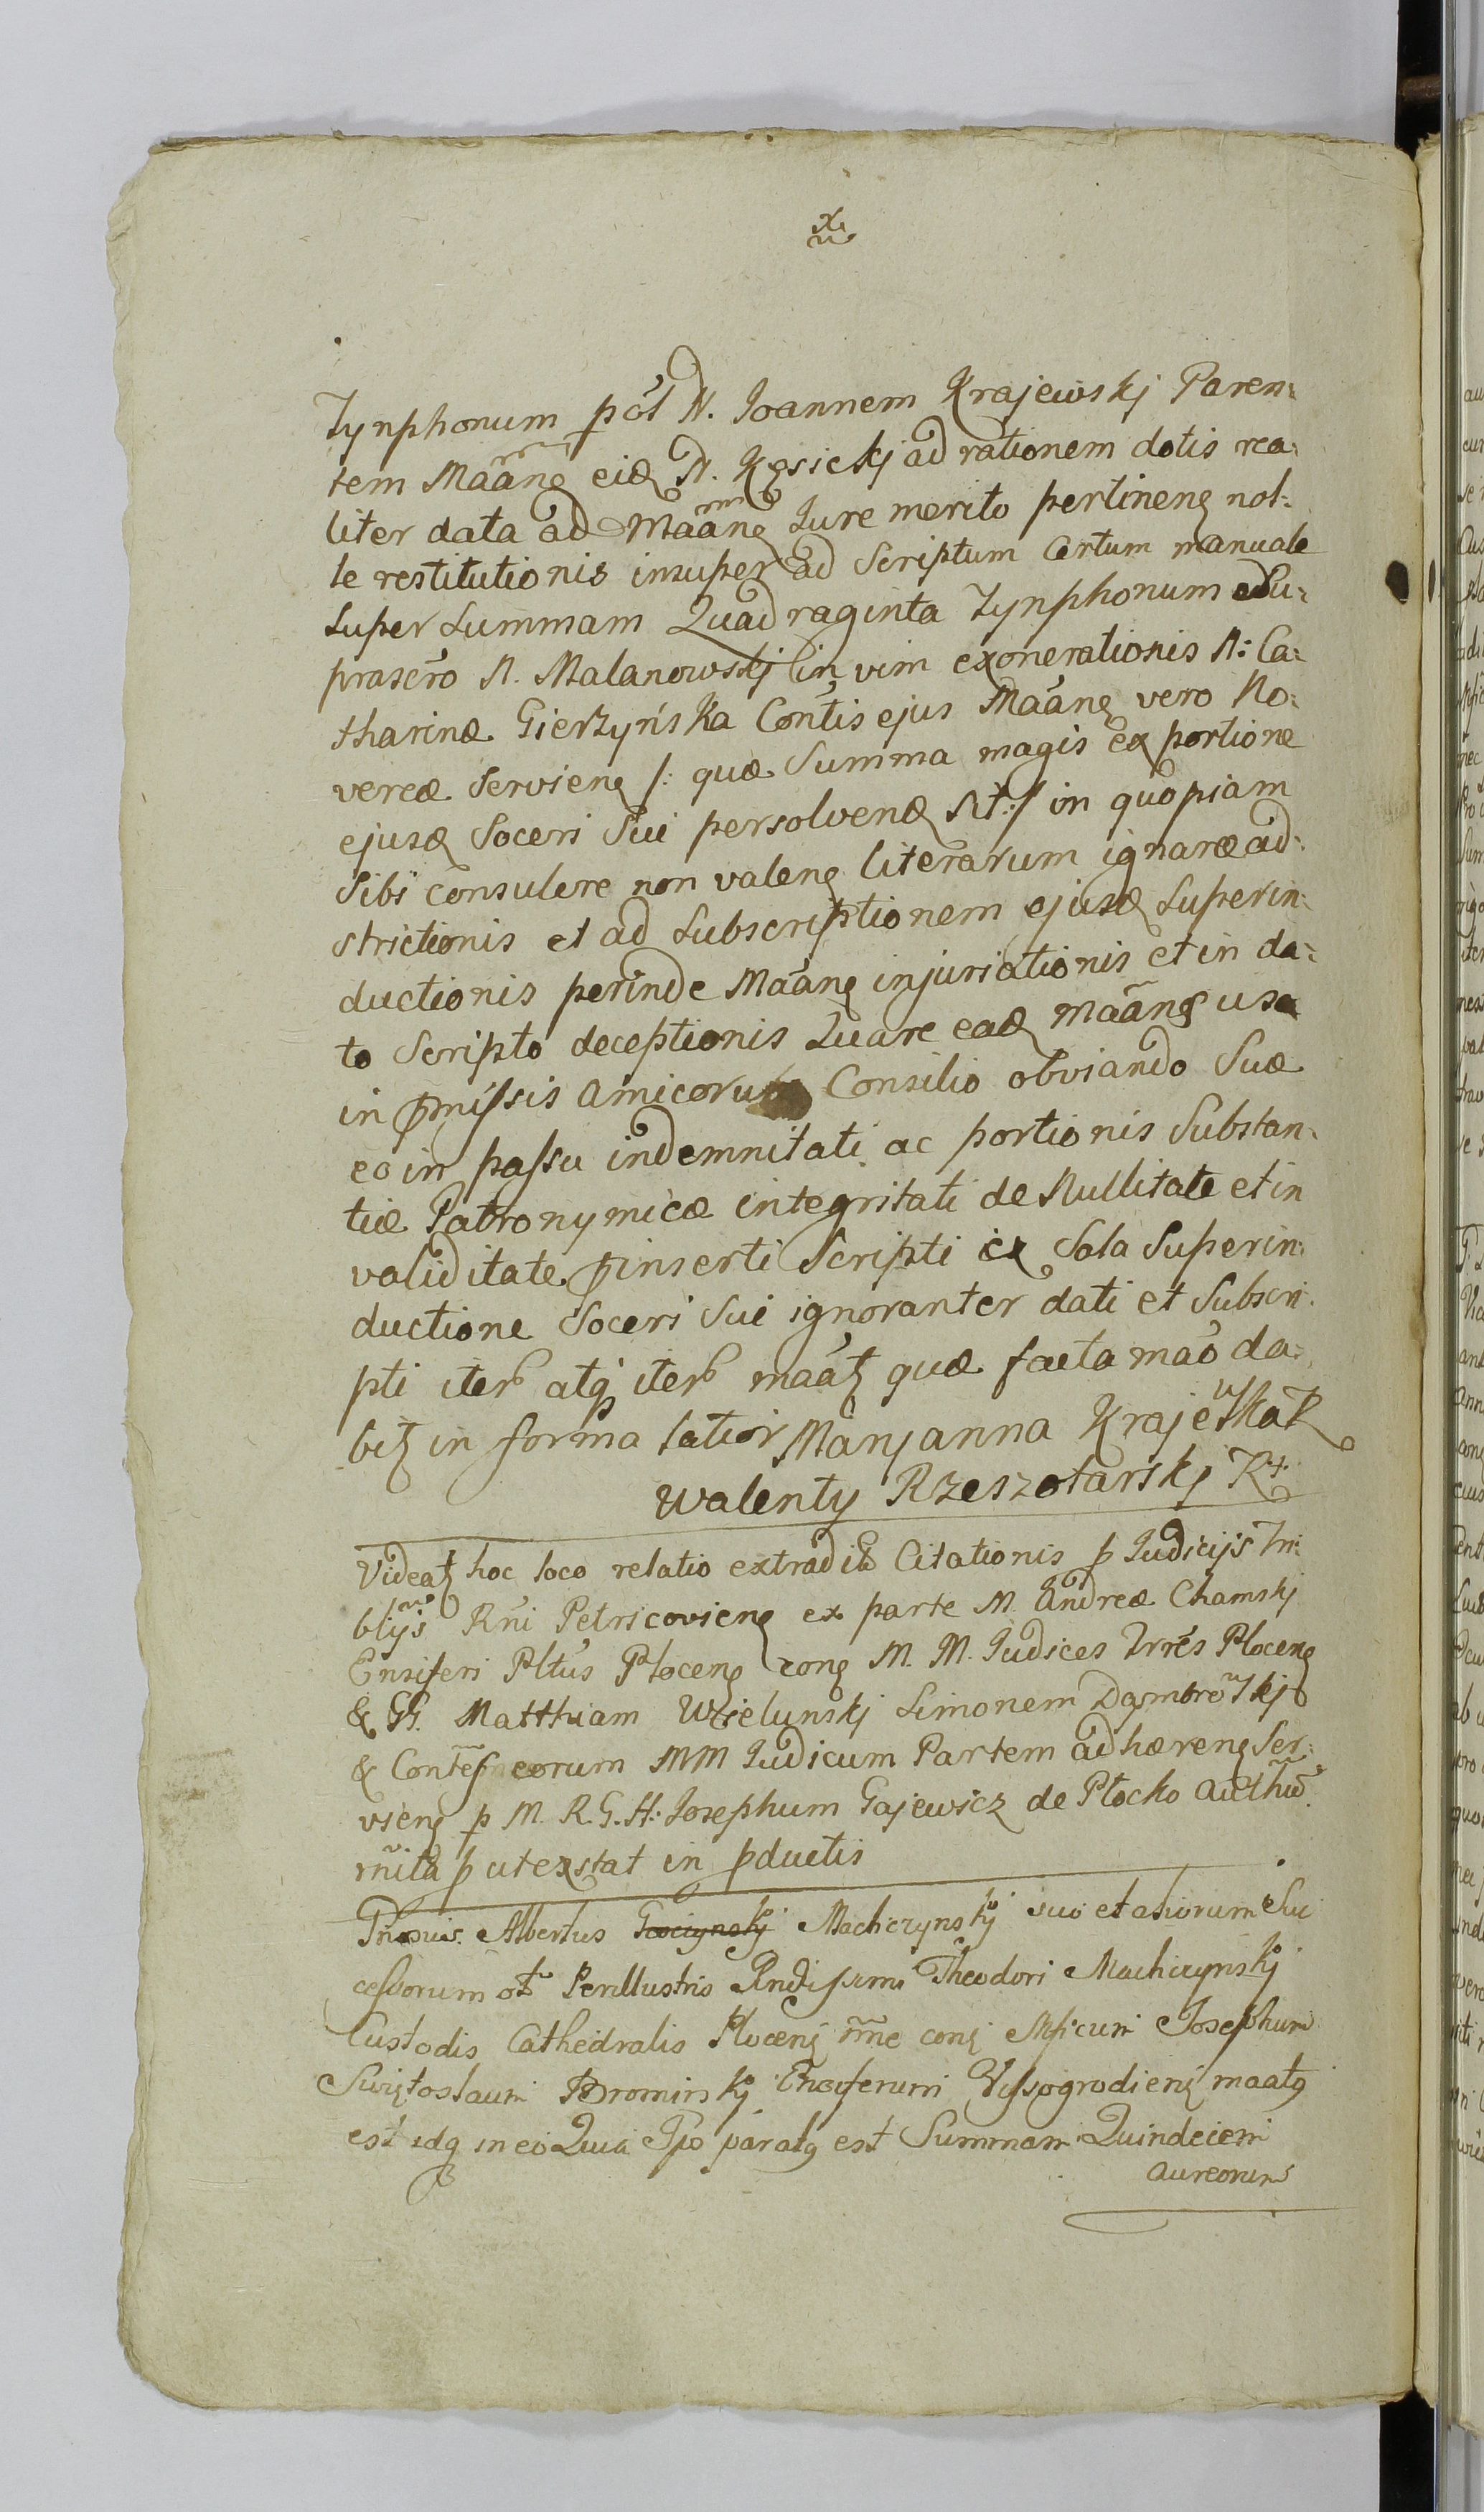 Tynphonum pór N. Joannem Krajewskj Paren:
tem Mãang eid N. Kęsickj ad rationem dotis rea:
liter data ad Mãang Jure merito pertineng nol:
le restitutionis insuper ad Scriptum Certum manuale
super Summam Quadraginta Tynphonum Su:
prasero N. Malanowskj in vim exonerationis N: Ca:
tharinæ Gierzyńska Contis ejus Maang vero No:
vercæ Servieng /: quæ Summa magis ex portione
ejusd Soceri Sui persolvend St:/ in quopiam
Sibi consulere non valeng literarum ignaræ ad:
strictionis et ad Subscriptionem ejusd Superin:
ductionis perinde Maang injuriationis et in da:
to Scripto deceptionis Quare ead mãang usa
in pmissis amicorum Consilio obviando Suæ
eo in passu indemnitati ac portionis Substan:
tiæ Patronymicæ integritati de Nullitate et in
validitate pinserti Scripti ex Sola Superin:
ductione Soceri Sui ignoranter dati et Subscri:
pti iter atq iter maat quæ facta mão da:
bit in forma latior Maryanna KrajewskaR
Walenty Rzeszotarskj R+
Videat hoc loco relatio extradit Citationis p Judicijs Tri:
blijs Rni Petricovieng ex parte M. Andreæ Chamskj
Ensiferi Pltus Ploceng cong M. M. Judices Trres Ploceng
& GG. Matthiam Wielunskj Simonem Dąmbrowskj
& Contes eorum MM Judicum Partem adhæreng Ser:
vieng p M. R. G. H: Josephum Gajewicz de Płocko auth
rnita p ut exstat in pductis
Albertus Machczynskj suo et aliorum Suc
cessorum Perillustris Rndissimi Theodori Machczynskj
Custodis Cathedralis Ploceng nne cong Mficum Josephum
Swiętosłaum Bromirskj Ensiferum Vyssogrodieng maatg
est idq in eo Quia Ipo paratg est Summam Quindecem
aureorum